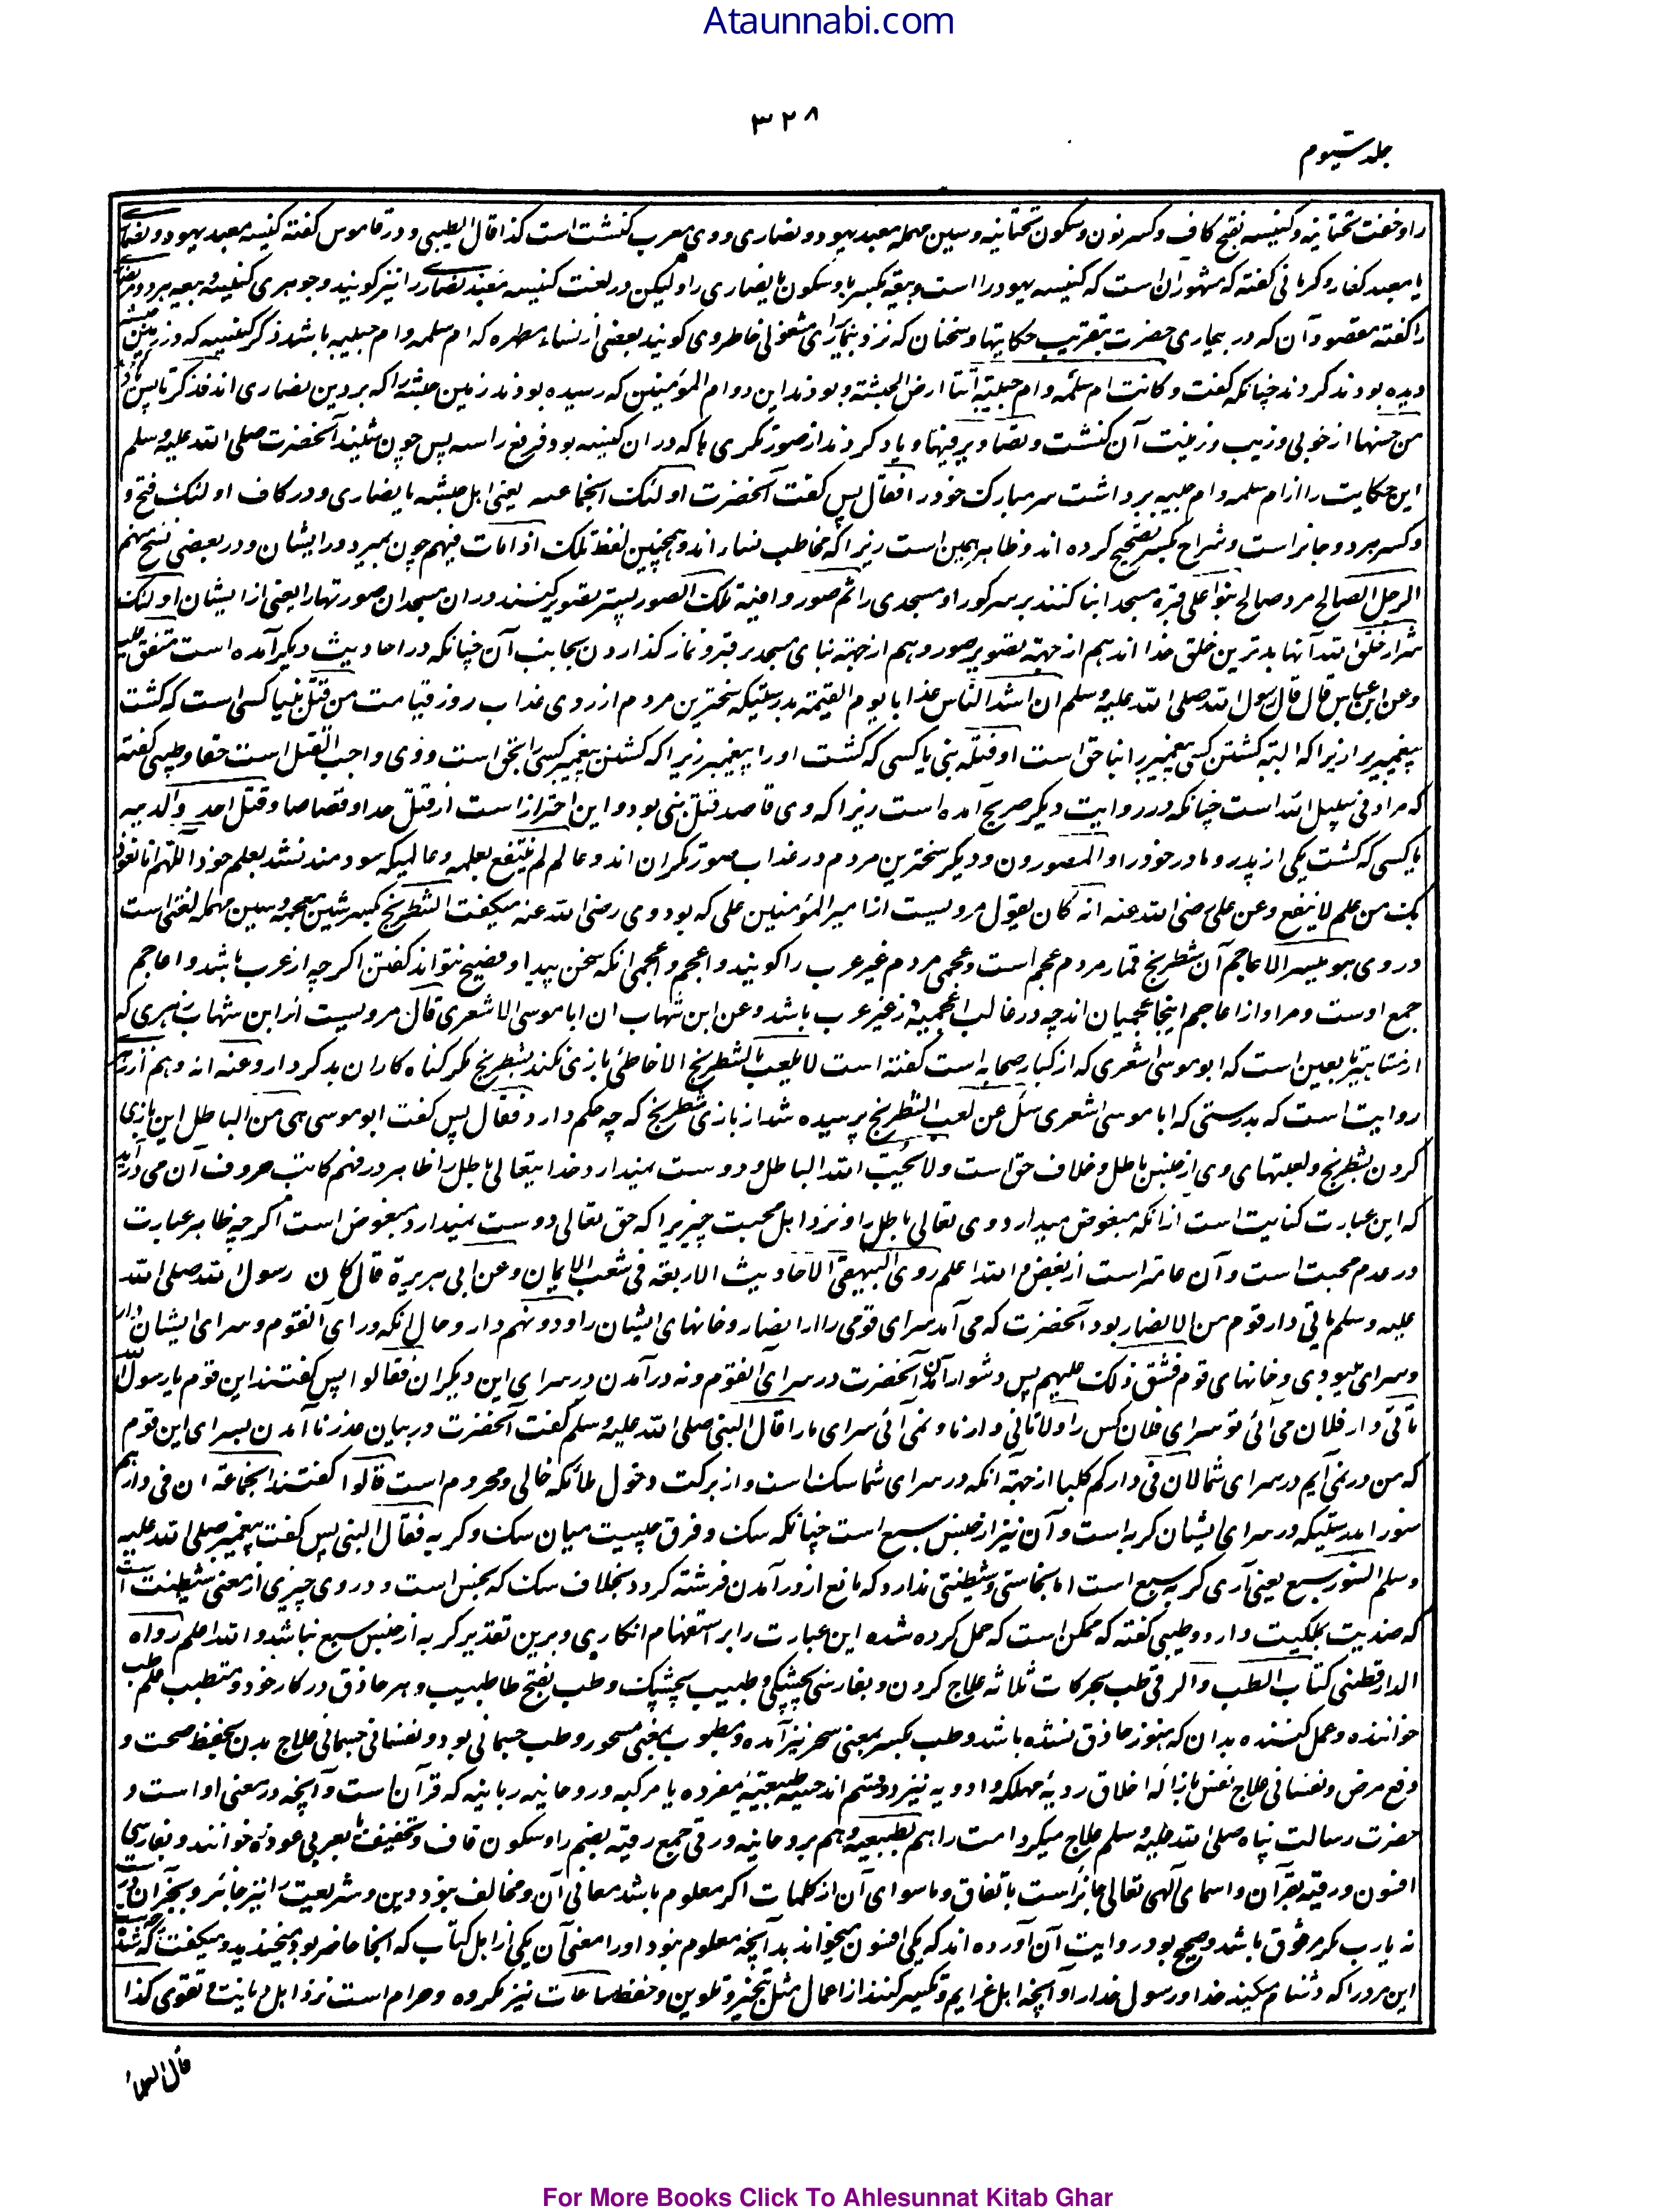 Ataunnabi.com
۳۲۸
جلد سیوم
را و خفت تحتانیه و کنیسه بفتح کاف و کسر نون و سکون تحتانیه و سین مهمله معبد یهود و نصاری و وی معرب کنشت است کذا قال الطیبی و در قاموس گفته کنیسه معبد یهود و نصاری
یا معبد کفار و کرمانی گفته که مشهور آن است که کنیسه یهود را است و بیعه بکسر با و سکون یا نصاری را و لیکن در لغت کنیسه معبد نصاری را نیز گویند و جوهری کنیسه و بیعه هر دو مر نصاری
را گفته مقصود آن که در بیماری حضرت بتقریب حکایتها و سخنان که نزد بیمار برای مشغولی خاطر وی گویند بعضی از نساء مطهره که ام سلمه و ام حبیبه باشد ذکر کنیسه که در زمین حبشه
دیده بودند کردند چنانکه گفت و کانت ام سلمه و ام حبیبة اتتا ارض الحبشة و بودند این دو ام المؤمنین که رسیده بودند زمین حبشه را که بر دین نصاری اند فذکرتا پس یاد کردند
من حسنها از خوبی و زیب و زینت آن کنشت و تصاویر فیها و یاد کردند از صورتگری ها که در آن کنیسه بود فرفع راسه پس چون شنید آنحضرت صلی الله علیه وسلم
این حکایت را از ام سلمه و ام حبیبه برداشت سر مبارک خود را فقال پس گفت آنحضرت اولئک آنجماعه یعنی اهل حبشه یا نصاری و در کاف اولئک فتح و
کسر هر دو جائز است و شراح بکسر تصحیح کرده اند و ظاهر همین است زیرا که مخاطب نساء اند و همچنین لفظ تلک اذا مات فیهم چون بمیرد در ایشان و در بعضی نسخ منهم
الرجل الصالح مرد صالح بنوا علی قبره مسجدا بنا کنند بر سر گور او مسجدی را ثم صوروا فیه تلک الصور پستر تصویر کنند در آن مسجد آن صورتها را یعنی از ایشان اولئک
شرار خلق الله آنها بدترین خلق خدا اند هم از جهة تصویر صور و هم از جهة بنای مسجد بر قبر و نماز گذاردن بجانب آن چنانکه در احادیث دیگر آمده است متفق علیه
وعن ابن عباس قال قال رسول الله صلی الله علیه وسلم ان اشد الناس عذابا یوم القیمة بدرستیکه سخت‌ترین مردم از روی عذاب روز قیامت من قتل نبیا کسی است که کشت
پیغمبری را زیرا که البته کشتن کسی پیغمبر را بناحق است او قتله نبی یا کسی که کشت او را پیغمبر زیرا که کشتن پیغمبر کسی را بحق است و وی واجب القتل است حقا و طیبی گفته
که مراد فی سبیل الله است چنانکه در روایت دیگر صریح آمده است زیرا که وی قاصد قتل نبی بود و این احتراز است از قتل حدا و قصاصا و قتل احد والدیه
یا کسی که کشت یکی از پدر و مادر خود را و المصورون و دیگر سخت‌ترین مردم در عذاب صورتگران اند و عالم لم ینتفع بعلمه و عالمیکه سودمند نشد بعلم خود اللهم انا نعوذ
بک من علم لا ینفع و عن علی رضی الله عنه انه کان یقول مرویست از امیر المؤمنین علی که بود وی رضی الله عنه میگفت الشطرنج بکسر شین معجمه و سین مهمله لغتی است
در وی هو میسر الاعاجم آن شطرنج قمار مردم عجم است و عجمی مردم غیر عرب را گویند و اعجم و اعجمی آنکه سخن پیدا و فصیح نتواند گفتن اگرچه از عرب باشد و اعاجم
جمع اوست و مراد از اعاجم اینجا عجمیان اند چه در غالب اعجمیة از غیر عرب باشد وعن ابن شهاب ان ابا موسی الاشعری قال مرویست از ابن شهاب زهری که
از مشاهیر تابعین است که ابو موسی اشعری که از کبار صحابه است گفته است لا یلعب بالشطرنج الا خاطئ بازی نکند بشطرنج مگر گناه کاران بد کردار وعنه انه و هم از زهری
روایت است که بدرستی که ابا موسی اشعری سئل عن لعب الشطرنج پرسیده شد از بازی شطرنج که چه حکم دارد فقال پس گفت ابو موسی هی من الباطل این بازی
کردن بشطرنج و لعبتهای وی از جنس باطل و خلاف حق است و لا یحب الله الباطل و دوست نمیدارد خدایتعالی باطل را ظاهر در فهم کاتب حروف آن می درآید
که این عبارت کنایت است از آنکه مبغوض میدارد وی تعالی باطل را و نزد اهل محبت چیزیرا که حق تعالی دوست نمیدارد مبغوض است اگرچه ظاهر عبارت
در عدم محبت است و آن عامتر است از بغض والله اعلم روی البیهقی الاحادیث الاربعة فی شعب الایمان وعن ابی هریرة قال کان رسول الله صلی الله
علیه وسلم یاتی دار قوم من الانصار بود آنحضرت که می آمد سرای قومی را از انصار و خانهای ایشان را و دونهم دار و حال آنکه ورای آنقوم و سرای ایشان دار
و سرای میبودی و خانهای قوم فشق ذلک علیهم پس دشوار آمد آن آنحضرت در سرای آنقوم و نه درآمدن در سرای این دیگران فقالوا پس گفتند این قوم یا رسول الله
تاتی دار فلان می آئی تو سرای فلان کس را و لا تاتی دارنا و نمی آئی سرای ما را قال النبی صلی الله علیه وسلم گفت آنحضرت در بیان عذر نا آمدن بسرای این قوم
که من در نمی آیم در سرای شما لان فی دارکم کلبا از جهة آنکه در سرای شما سگ است و از برکت دخول ملائکه خالی و محروم است قالوا گفتند آنجماعة ان فی دارهم
سنورا بدرستیکه در سرای ایشان گربه است و آن نیز از جنس سبع است چنانکه سگ و فرق چیست میان سگ و گربه فقال النبی پس گفت پیغمبر صلی الله علیه
وسلم السنور سبع یعنی آری گربه سبع است اما نجاستی و شیطنتی ندارد که مانع از درآمدن فرشته گردد بخلاف سگ که نجس است و در وی چیزی از معنی شیطنت است
که ضدیت بملکیت دارد و طیبی گفته که ممکن است که حمل کرده شده این عبارت را بر استفهام انکاری و برین تقدیر گربه از جنس سبع نباشد والله اعلم رواه
الدارقطنی کتاب الطب والرقی طب بحرکات ثلاثه علاج کردن و بفارسی بچشکی و طبیب بچشک و طب بفتح طا طبیب و هر حاذق در کار خود و متطبب علم طب
خواننده و عمل کننده بدان که هنوز حاذق نشده باشد و طب بکسر بمعنی سحر نیز آمده و مطبوب بمعنی مسحور و طب جسمانی بود و نفسانی جسمانی علاج بدن بحفظ صحت و
دفع مرض و نفسانی علاج نفس بازاله اخلاق ردیه مهلکه و ادویه نیز دو قسم اند حسیه طبیعیه مفرده یا مرکبه و روحانیه ربانیه که قرآن است و آنچه در معنی او است و
حضرت رسالت پناه صلی الله علیه وسلم علاج میکرد امت را هم بطبیعیه و هم بروحانیه و رقی جمع رقیه بضم را و سکون قاف و تخفیف یا بعربی عوذه خوانند و بفارسی
افسون و رقیه بقرآن و اسمای الهی تعالی جائز است باتفاق و ماسوای آن از کلمات اگر معلوم باشد معانی آن و مخالف نبود دین و شریعت را نیز جائز و بجز آن درست
نه یا رب مگر موثوق باشد و صحیح بود روایت آن آورده اند که یکی افسون میخواند بدآنچه معلوم نبود او را معنی آن یکی از اهل کتاب که آنجا حاضر بود بخندید و میگفت چه شده است
این مرد را که دشنام میکند خدا و رسول خدا را و آنچه اهل غرایم و تکسیر کنند از اعمال مثل تبخیر و تلوین و حفظ ساعات نیز مکروه و حرام است نزد اهل دیانت و تقوی کذا
قال العلماء
For More Books Click To Ahlesunnat Kitab Ghar